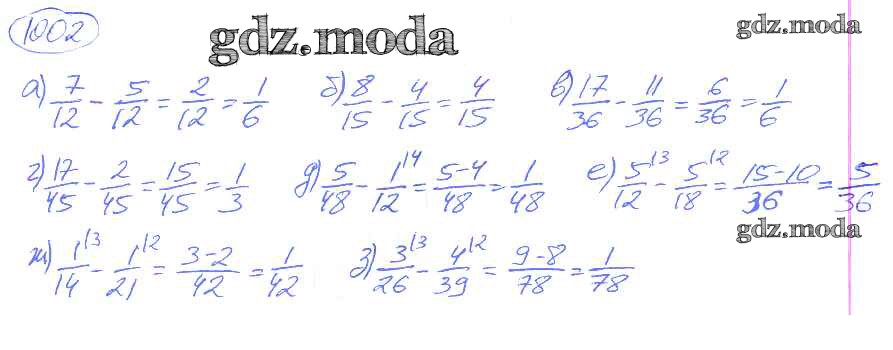 1002
gdz.moda
gdz.moda
а) 7/12 - 5/12 = 2/12 = 1/6 б) 8/15 - 4/15 = 4/15 в) 17/36 - 11/36 = 6/36 = 1/6
г) 17/45 - 2/45 = 15/45 = 1/3 д) 5/48 - 1/12 |4 = 5-4/48 = 1/48 е) 5/12 |3 - 5/18 |2 = 15-10/36 = 5/36
gdz.moda
ж) 1/14 |3 - 1/21 |2 = 3-2/42 = 1/42 з) 3/26 |3 - 4/39 |2 = 9-8/78 = 1/78